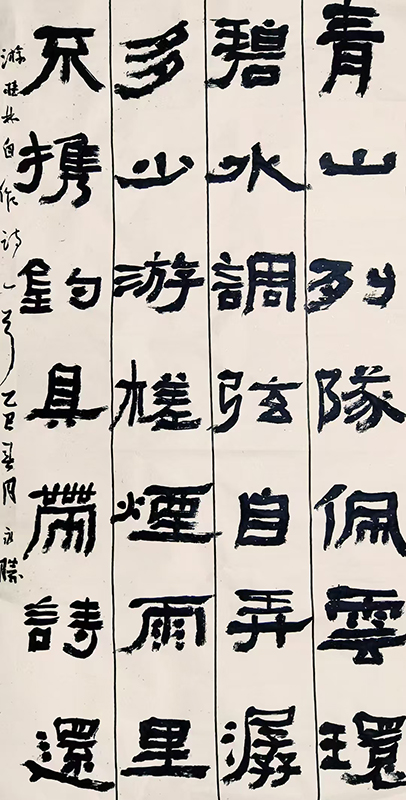 青山列隊佩雲環
碧水調弦自弄潺
多少游槎煙雨里
不携釣具帶詩還
游桂林自作詩一首 乙巳春月 永勝